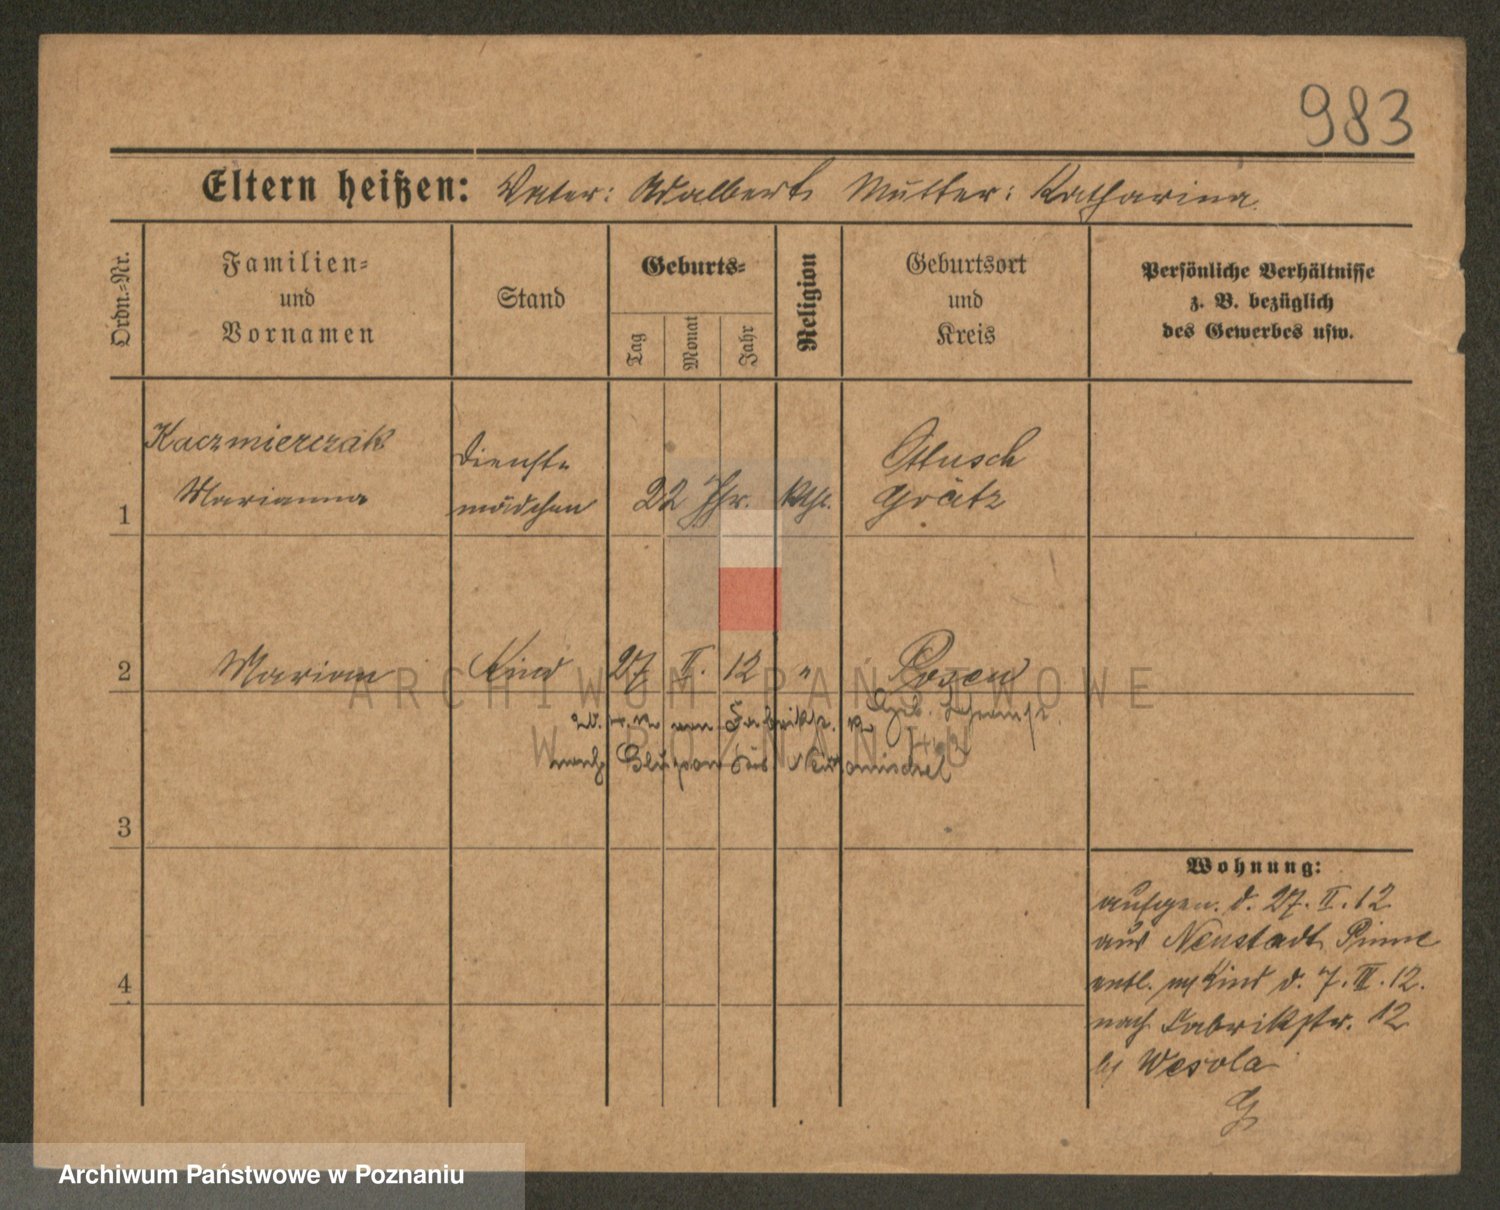 983
Eltern heißen: Vater: Adalbert Mutter: Katharina
Ordn.-Nr.
Familien-
und
Vornamen
Stand
Geburts-
Tag
Monat
Jahr
Religion
Geburtsort
und
Kreis
Persönliche Verhältnisse
z. B. bezüglich
des Gewerbes usw.
Kaczmierczak
Marianna
Dienst-
mädchen
22 Jhr.
kth.
Ottusch
Grätz
1
2 Marian Kind 27 II. 12 " Posen
ARCHIWUM PAŃSTWOWE
W POZNANIU
nach Neutomischel
3
4
Wohnung:
aufgen. d. 27. II. 12
aus Neustadt Pinne
entl. m/ Kind d. 7. III. 12.
nach Fabrikstr. 12
b/ Wesola
G
Archiwum Państwowe w Poznaniu